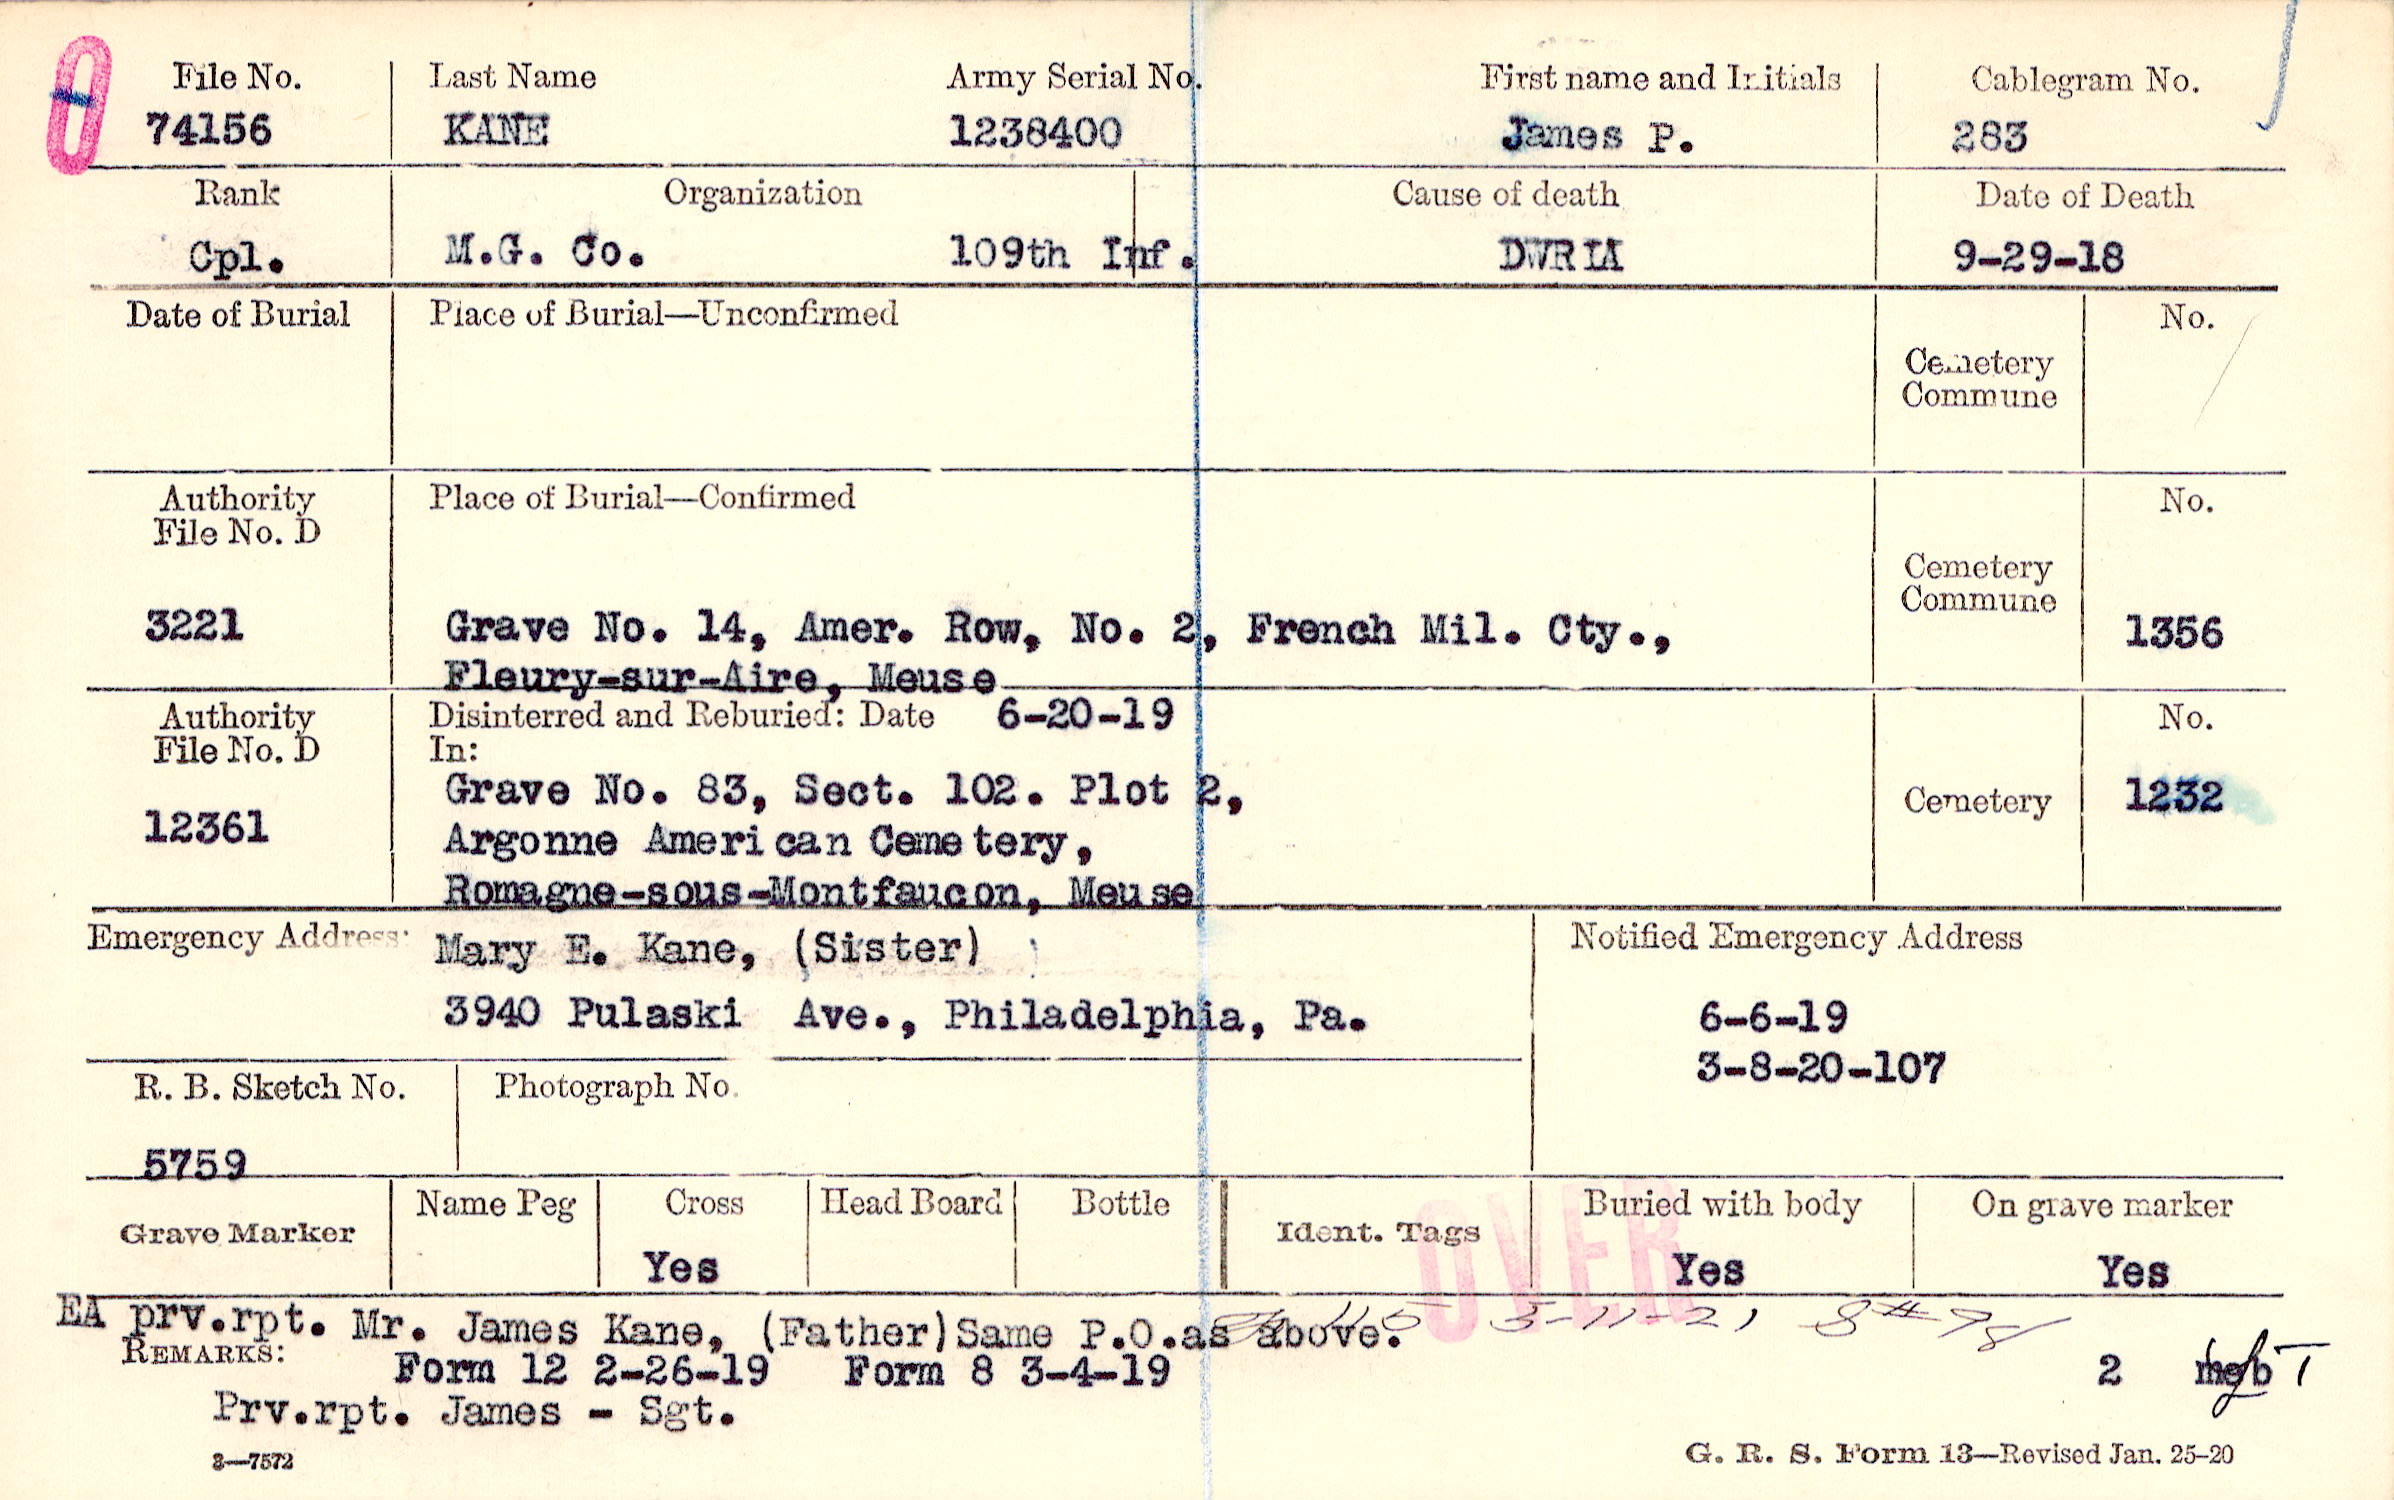 File No. Last Name Army Serial No. First name and Initials Cablegram No.
74156 KANE 1238400 James P. 283
Rank Organization Cause of death Date of Death
Cpl. M.G. Co. 109th Inf. DWRIA 9-29-18
Date of Burial Place of Burial—Unconfirmed No.
Cemetery
Commune
Authority Place of Burial—Confirmed No.
File No. D
Cemetery
Commune
3221 Grave No. 14, Amer. Row, No. 2, French Mil. Cty., 1356
Fleury-sur-Aire, Meuse
Authority Disinterred and Reburied: Date 6-20-19 No.
File No. D In:
Grave No. 83, Sect. 102. Plot 2, Cemetery 1232
12361 Argonne American Cemetery,
Romagne-sous-Montfaucon, Meuse
Emergency Address: Mary E. Kane, (Sister) Notified Emergency Address
3940 Pulaski Ave., Philadelphia, Pa. 6-6-19
3-8-20-107
R. B. Sketch No. Photograph No.
5759
Grave Marker Name Peg Cross Head Board Bottle Ident. Tags Buried with body On grave marker
Yes Yes Yes
OVER
EA prv.rpt. Mr. James Kane, (Father) Same P.O.as above. 3-11-21
REMARKS: Form 12 2-26-19 Form 8 3-4-19 2
Prv.rpt. James - Sgt.
3—7572 G. R. S. Form 13—Revised Jan. 25-20